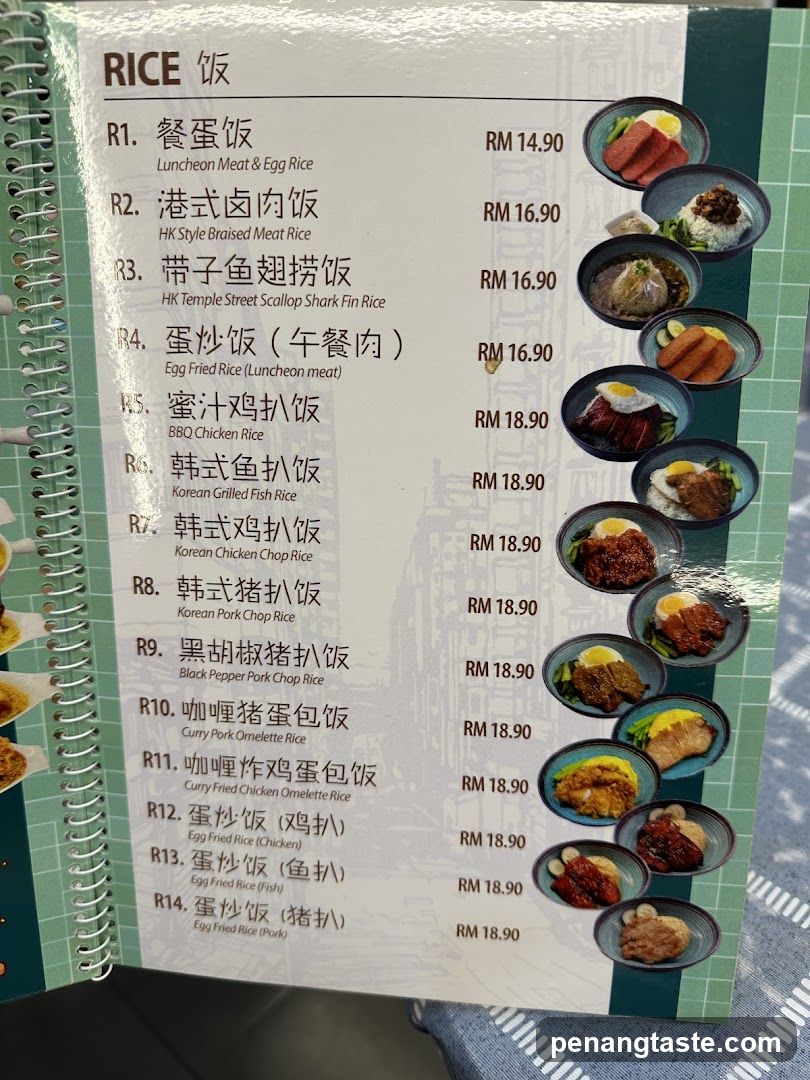 RICE 饭
R1. 餐蛋饭 RM 14.90
Luncheon Meat & Egg Rice
R2. 港式卤肉饭 RM 16.90
HK Style Braised Meat Rice
R3. 带子鱼翅捞饭 RM 16.90
HK Temple Street Scallop Shark Fin Rice
R4. 蛋炒饭 ( 午餐肉 ) RM 16.90
Egg Fried Rice (Luncheon meat)
R5. 蜜汁鸡扒饭 RM 18.90
BBQ Chicken Rice
R6. 韩式鱼扒饭 RM 18.90
Korean Grilled Fish Rice
R7. 韩式鸡扒饭 RM 18.90
Korean Chicken Chop Rice
R8. 韩式猪扒饭 RM 18.90
Korean Pork Chop Rice
R9. 黑胡椒猪扒饭 RM 18.90
Black Pepper Pork Chop Rice
R10. 咖喱猪蛋包饭 RM 18.90
Curry Pork Omelette Rice
R11. 咖喱炸鸡蛋包饭 RM 18.90
Curry Fried Chicken Omelette Rice
R12. 蛋炒饭 (鸡扒) RM 18.90
Egg Fried Rice (Chicken)
R13. 蛋炒饭 (鱼扒) RM 18.90
Egg Fried Rice (Fish)
R14. 蛋炒饭 (猪扒) RM 18.90
Egg Fried Rice (Pork)
penangtaste.com